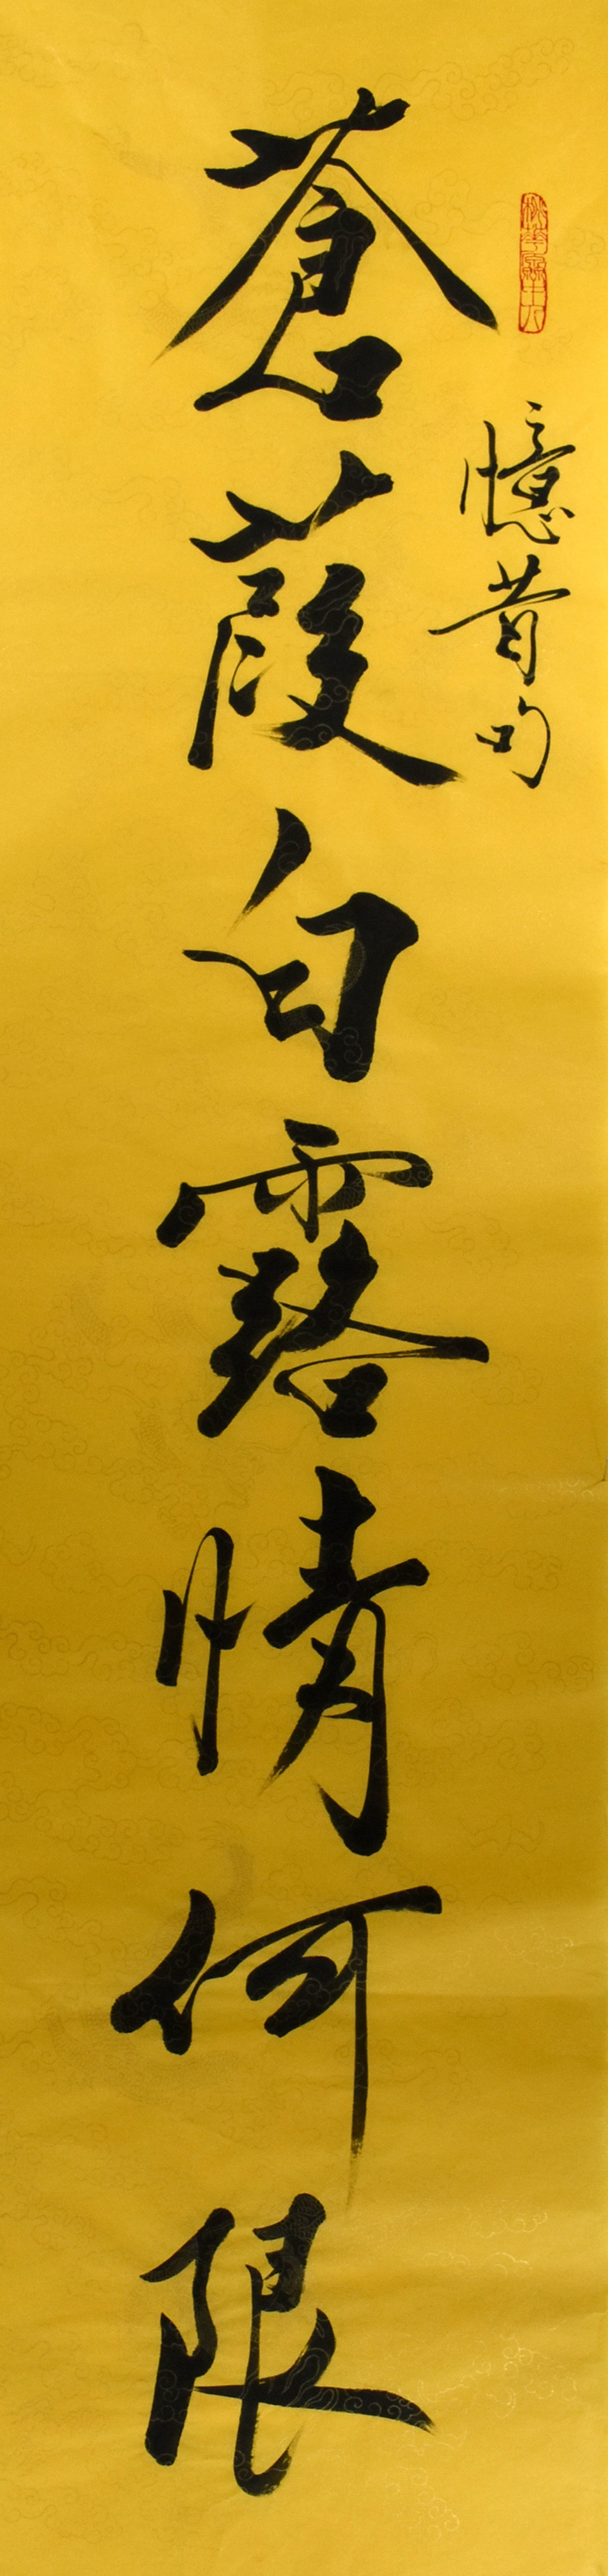 憶昔句
蒼葭白露情何限